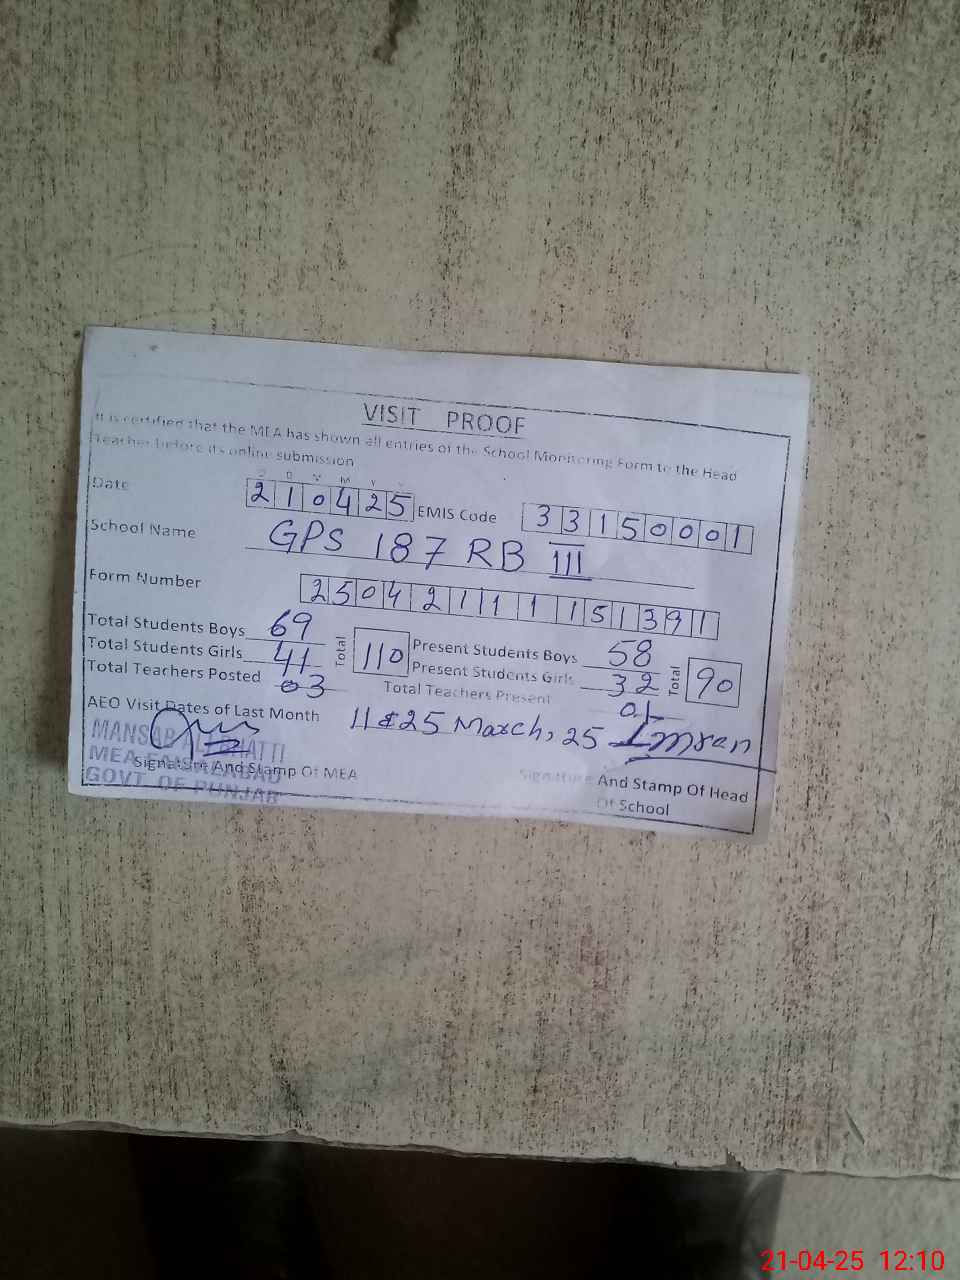 VISIT PROOF
It is certified that the MEA has shown all entries of the School Monitoring Form to the Head
Teacher before its online submission
D D M M Y Y
Date 210425 EMIS Code 33150001
School Name GPS 187 RB III
Form Number 250421111151391
Total Students Boys 69 Total 110 Present Students Boys 58 Total 90
Total Students Girls 41 Present Students Girls 32
Total Teachers Posted 03 Total Teachers Present 01
AEO Visit Dates of Last Month 11 & 25 March, 25 Imran
MANSAB ALI BHATTI
MEA FAISALABAD
GOVT. OF PUNJAB
Signature And Stamp Of MEA
Signature And Stamp Of Head
Of School
21-04-25 12:10